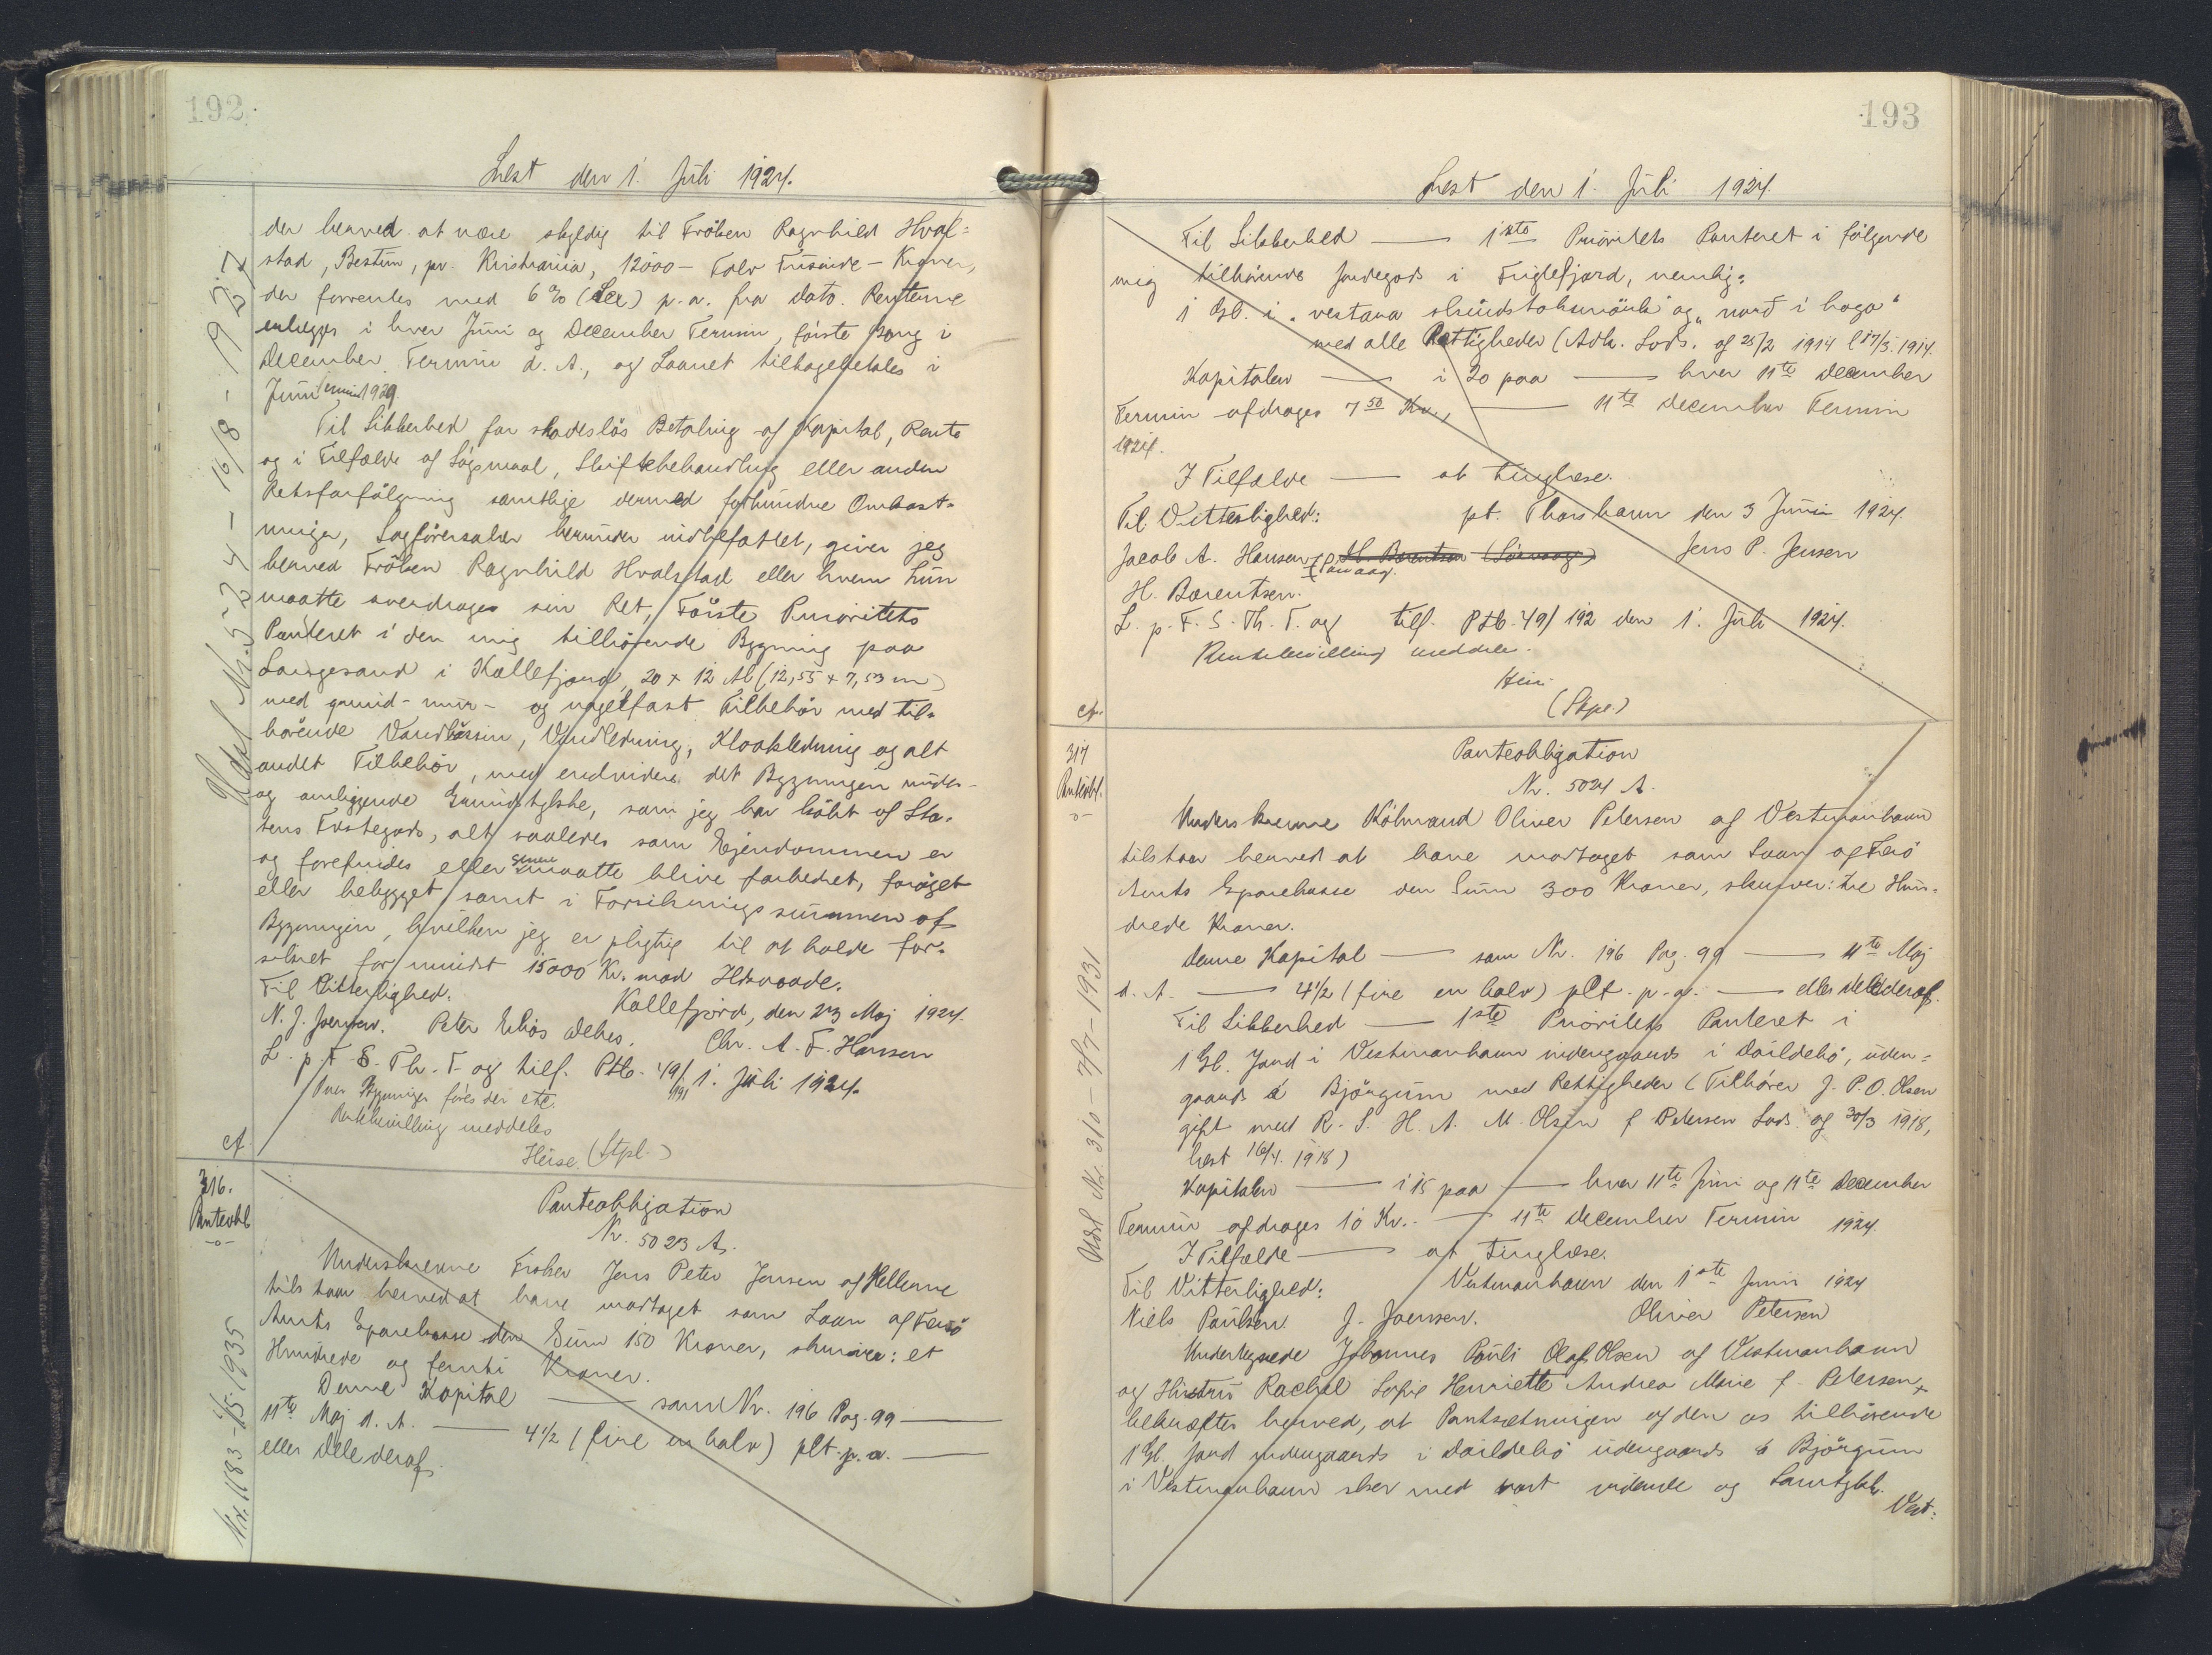 192
Læst den 1. Juli 1924.
der herved at være skyldig til Fröken Ragnhild Hval=
stad, Bestum, pr. Kristiania, 12000 - Tolv Tusinde - Kroner,
der forrentes med 6 % (Sex) p.a. fra Dato. Renterne
erlægges i hver Juni og December Termin, första Gang i
December Termin d. A., og Laanet tilbagebetales i
Juni Termin 1929.
Til Sikkerhed for skadeslös Betaling af Kapital, Rente
og i Tilfælde af Sögsmaal, Skiftebehandling eller anden
Retsforfölgning samtlige dermed forbundne Omkost=
ninger, Sagförersalær herunder indbefattet, giver jeg
herved Fröken Ragnhild Hvalstad eller hvem hun
maatte overdrage sin Ret, Förste Prioritets
Panteret i den mig tilhörende Bygning paa
Langesand i Kollefjord, 20 x 12 Al (12,55 x 7,53 m)
med grund- mur- og nagelfast Tilbehör med til=
hörende Vandbassin, Vandledning, Kloakledning og alt
andet Tilbehör, med endvidere det Bygningen under-
og omliggende Grundstykke, som jeg har köbt af Sta=
tens Fæstegods, alt saaledes som Ejendommen er
og forefindes eller senere maatte blive forbedret, foröget
eller bebygget samt i Forsikringssummen af
Bygningen, hvilken jeg er pligtig til at holde for=
sikret for mindst 15000 Kr. mod Ildsvaade.
Til Vitterlighed: Kollefjord, den 23 Maj 1924.
N. J. Joensen. Peter Elias Debes. Chr. A. F. Hansen
L. p. F. S. Th. T. og tilf. Ptb. 49/191 1. Juli 1924.
Paa Bygningen föres der etc.
Rentebevilling meddeles
Heise. (Stpl.)
cf.
Udsl. Nr. 524 - 16/8 - 1927
316.
Panteobl
-o-
Panteobligation
Nr. 5023 A.
Underskrevne Fisker Jens Peter Jensen af Hellerne
tilstaar herved at have modtaget som Laan af Færö
Amts Sparekasse den Sum 150 Kroner, skriver: et
Hundrede og femti Kroner.
Denne Kapital — som Nr. 196 Pag. 99 —
11te Maj d. A. — 4 1/2 (fire en halv) pCt. p. a. —
eller Dele deraf.
Nr. 1183 - 4/5 - 1935
193
Læst den 1. Juli 1924.
Til Sikkerhed — 1ste Prioritets Panteret i fölgende
mig tilhörende Jordegods i Fuglefjord, nemlig:
1 Gl. i "vestara og "nord i haga"
med alle Rettigheder (Adk. Lods. af 25/2 1914 l 17/3. 1914.
Kapitalen — i 20 paa — hver 11te December
Termin afdrages 7 50 Kr., — 11te December Termin
1924.
I Tilfælde — at tinglæse.
Til Vitterlighed: pt. Thorshavn den 3 Juni 1924.
Jacob A. Hansen H. Barentsen (Sörvaag) Jens P. Jensen
H. Barentsen.
L. p. F. S. Th. T. og tilf. Ptb. 49/192 den 1. Juli 1924.
Rentebevilling meddeles.
Heise
(Stpl.)
cf.
317
Panteobl.
-o-
Panteobligation
Nr. 5024 A.
Underskrevne Köbmand Oliver Petersen af Vestmanhavn
tilstaar herved at have modtaget som Laan af Færö
Amts Sparekasse den Sum 300 Kroner, skriver: tre Hun=
drede Kroner.
Denne Kapital — som Nr. 196 Pag. 99 — 11te Maj
d. A. — 4 1/2 (fire en halv) pCt. p. a. — eller Dele deraf.
Til Sikkerhed — 1ste Prioritets Panteret i
1 Gl. Jord i Vestmanhavn indengaards i Daildebö, uden=
gaards á Björgum med Rettigheder (Tilhörer J. P. O. Olsen
gift med R. S. H. A. M. Olsen f Petersen Lods. af 30/3 1918,
læst 16/4. 1918)
Kapitalen — i 15 paa — hver 11te Juni og 11te December
Termin afdrages 10 Kr. — 11te December Termin 1924.
I Tilfælde — at tinglæse.
Til Vitterlighed: Vestmanhavn den 1ste Juni 1924
Niels Paulsen. J. Joensen. Oliver Petersen
Undertegnede Johannes Pauli Olaf Olsen af Vestmanhavn
og Hustru Rachel Sofie Henriette Andrea Marie f. Petersen,
bekræfter herved, at Pantsætningen af den os tilhörende
1 Gl. Jord indengaards i Daildebö udengaards á Björgum
i Vestmanhavn sker med vort vidende og Samtykke.
Vest-
Udsl. Nr. 310 - 7/7 - 1931